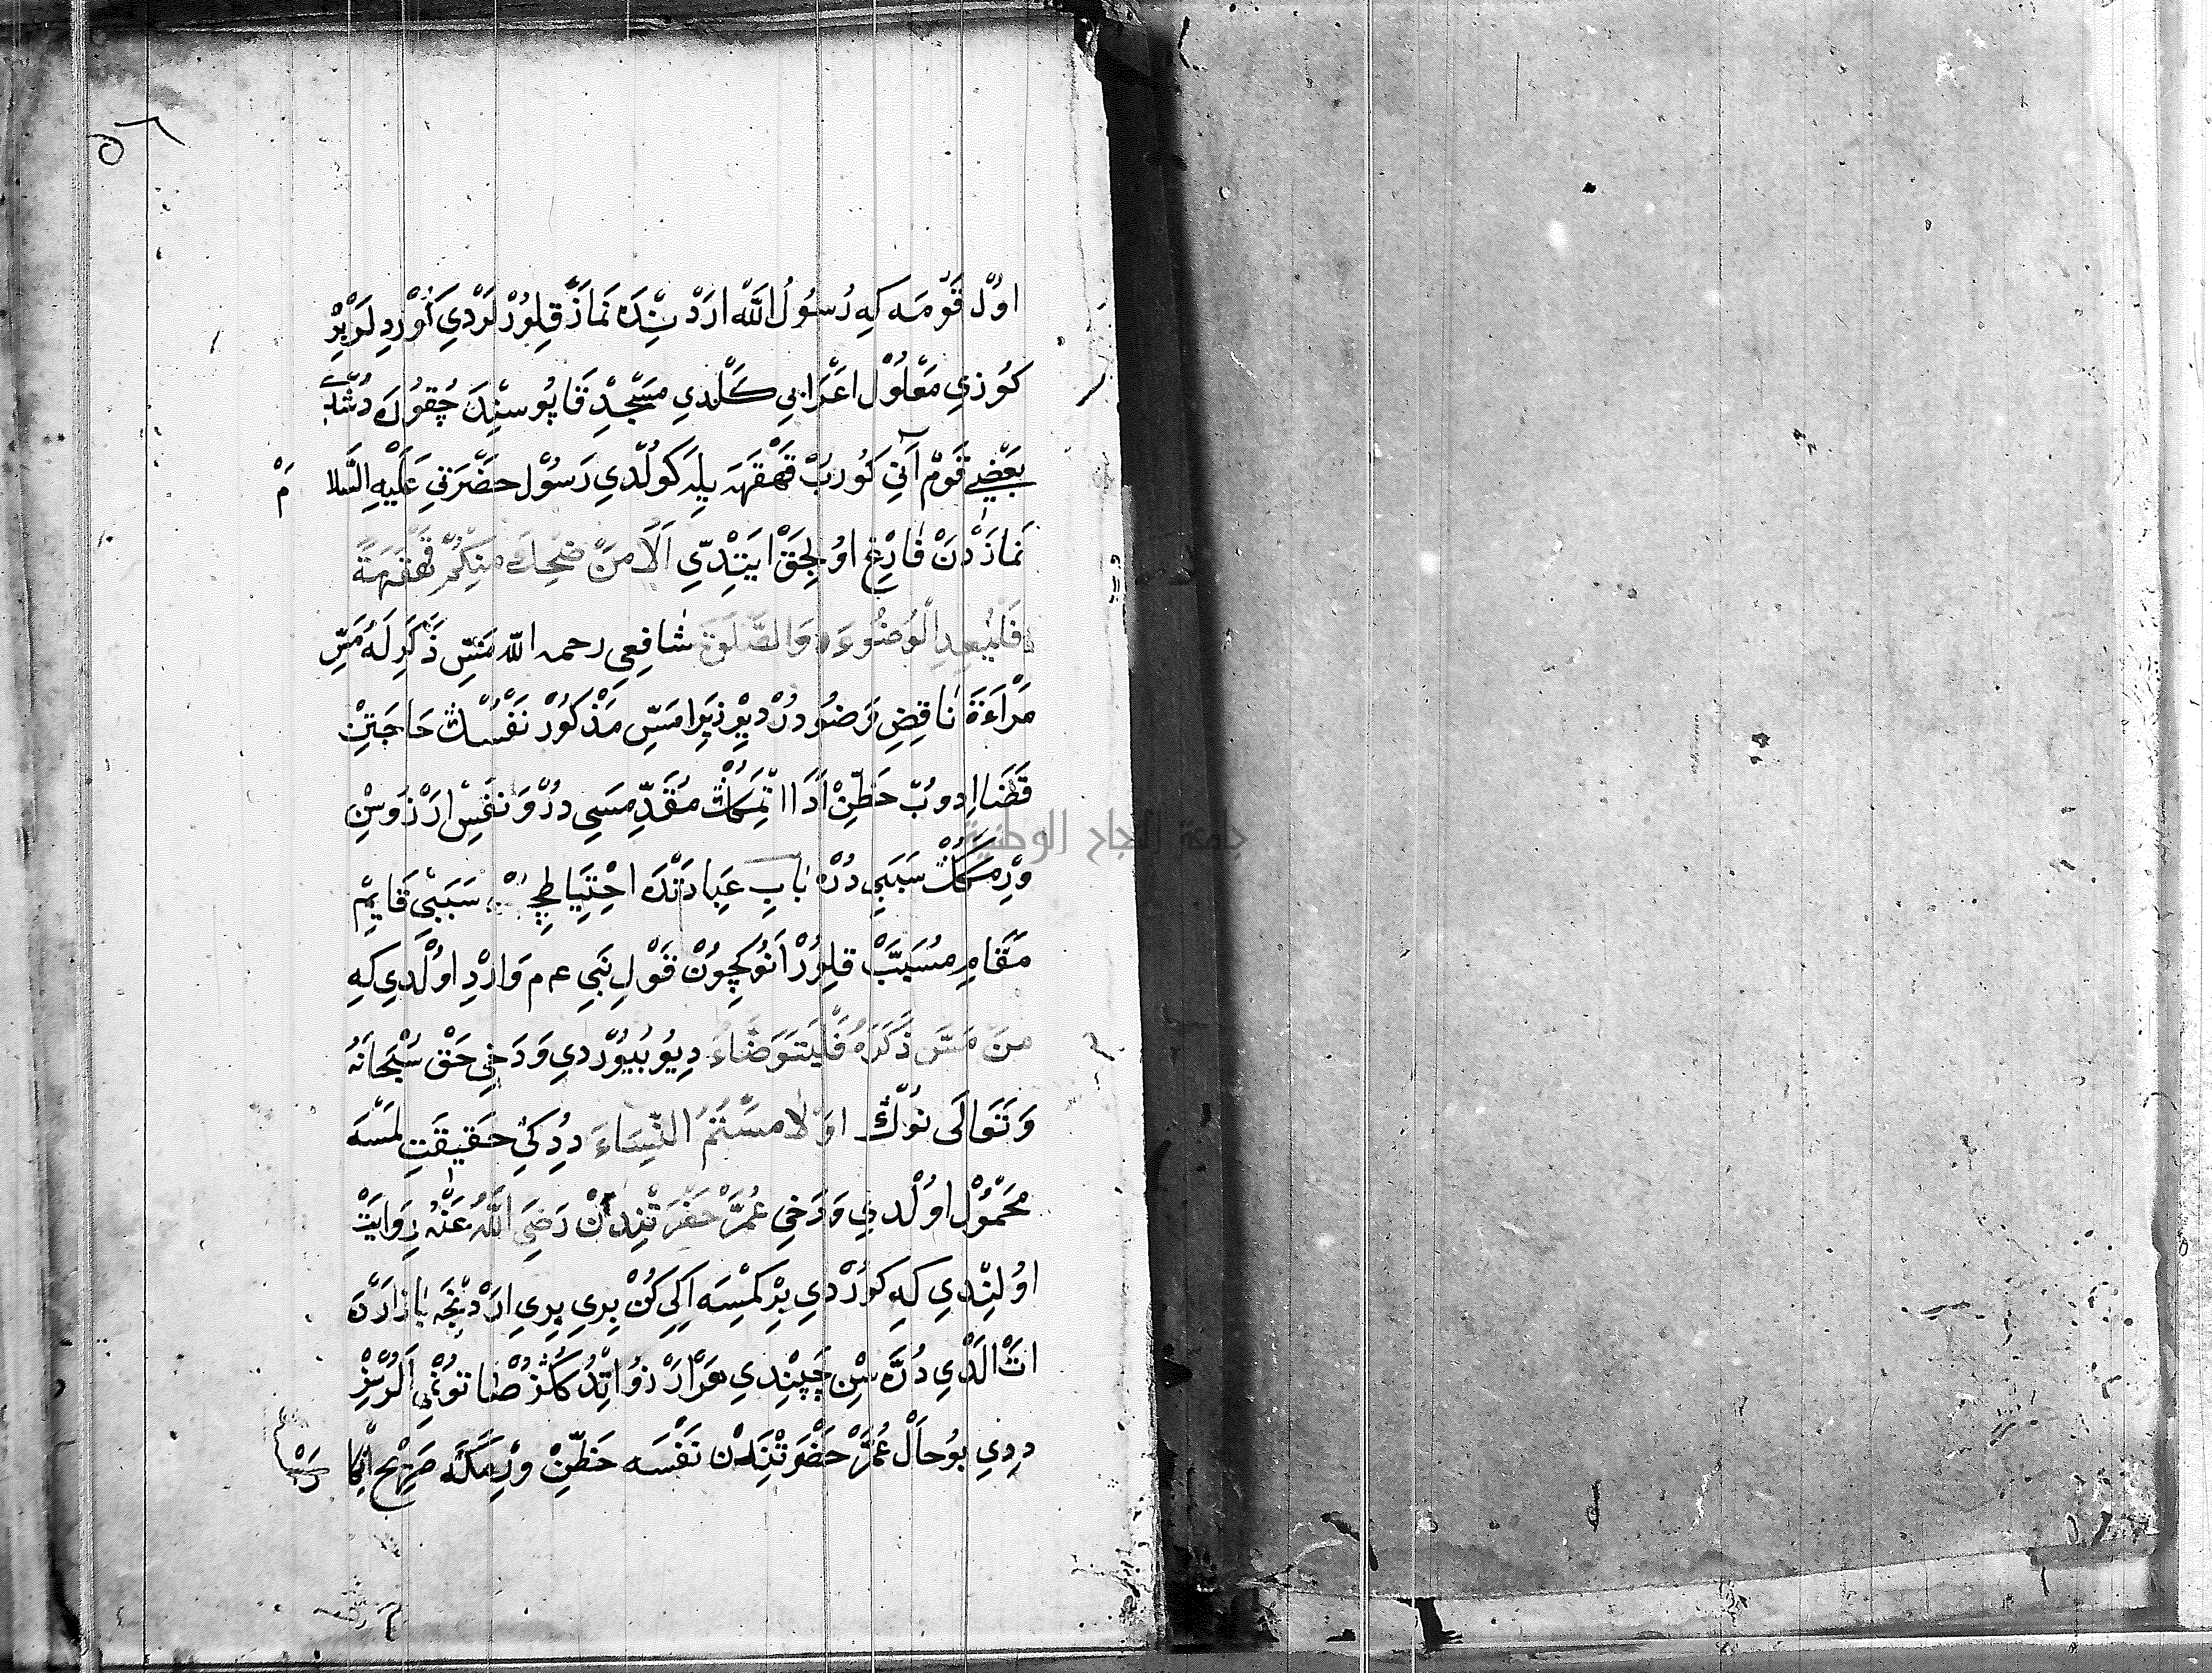 ٥٦
اوُلْ قَوْمَه كِه رَسُولُ اللّٰه ارَدْنِنْدَه نَمَازْ قِلُورْلَرْدِي اُوْرَدِلَرْ بِرْ
كُوزِي مَعْلُولْ اعْرَابِي كَلْدِي مَسْجِدْ قَاپُوسِنْدَ چُقُورَه دُشْدِي
بَعْضِي قَوْمْ آنِي كُورُبْ قَهْقَهَه يِلَه كُولْدِي رَسُولْ حَضْرَتِي عَلَيْهِ السَّلامْ
نَمَازْدَنْ فَارِغْ اوُلِجَقْ ايَتْدِي اَلَا مَنْ ضَحِكَ مِنْكُمْ قَهْقَهَةً
فَلْيُعِدِ الْوُضُوءَ وَالصَّلٰوةَ شَافِعِي رحمه اللّه مَسِّ ذَكَرِلَه مَسِّ
مَرْاَءَة نَاقِضِ وَضُودُرْ دِيْرْ زِيرَا مَسِّ مَذْكُورْ نَفْسُڭْ حَاجَتِنْ
قَضَا ايدوبْ حَظِّنْ اَدَا اتْمَكُڭْ مُقَدِّمَسِي دُرْ وَنَفْسِ ارْزَوسِنْ
وَرْمَكُڭْ سَبَبِي دُرْ بَابِ عِبَادَتْدَه احْتِيَاطِچُنْ سَبَبِي قَايِمْ
مَقَامِ مُسَبَّبْ قِلُورْ اَنُوكِچُونْ قَوْلِ نَبِي ع م وَارِدْ اوُلْدِي كِه
مَنْ مَسَّ ذَكَرَهُ فَلْيَتَوَضَّاءْ دِيُو بُيُورْدِي وَدَخِي حَقْ سُبْحَانَهُ
وَتَعَالَى نُوكْ اوْ لَامَسْتُمُ النِّسَاءَ دِدِكِي حَقِيقَتِ لَمْسَه
مَحْمُولْ اوُلْدِي وَدَخِي عُمَرْ حَضْرَتْنِدَنْ رَضِيَ اللّٰهُ عَنْهُ رِوَايَتْ
اوُلِنْدِي كِه كُورْدِي بِرْ كِمْسَه اِكِي كُنْ بِرِي بِرِي ارْدِنْجَه بَازَارْدَه
اتْ الْدِي دُرَّه سِنْ چَپِنْدِي هَرْ ارْزُو اتْدُكُڭُزْ ضَاتُونْمِي اَلُرْسِزْ
دِدِي بُو حَالْ عُمَرْ حَضْرَتْنِدَنْ نَفْسَه حَظِّنْ وِرْمَكَه صَرِيحْ